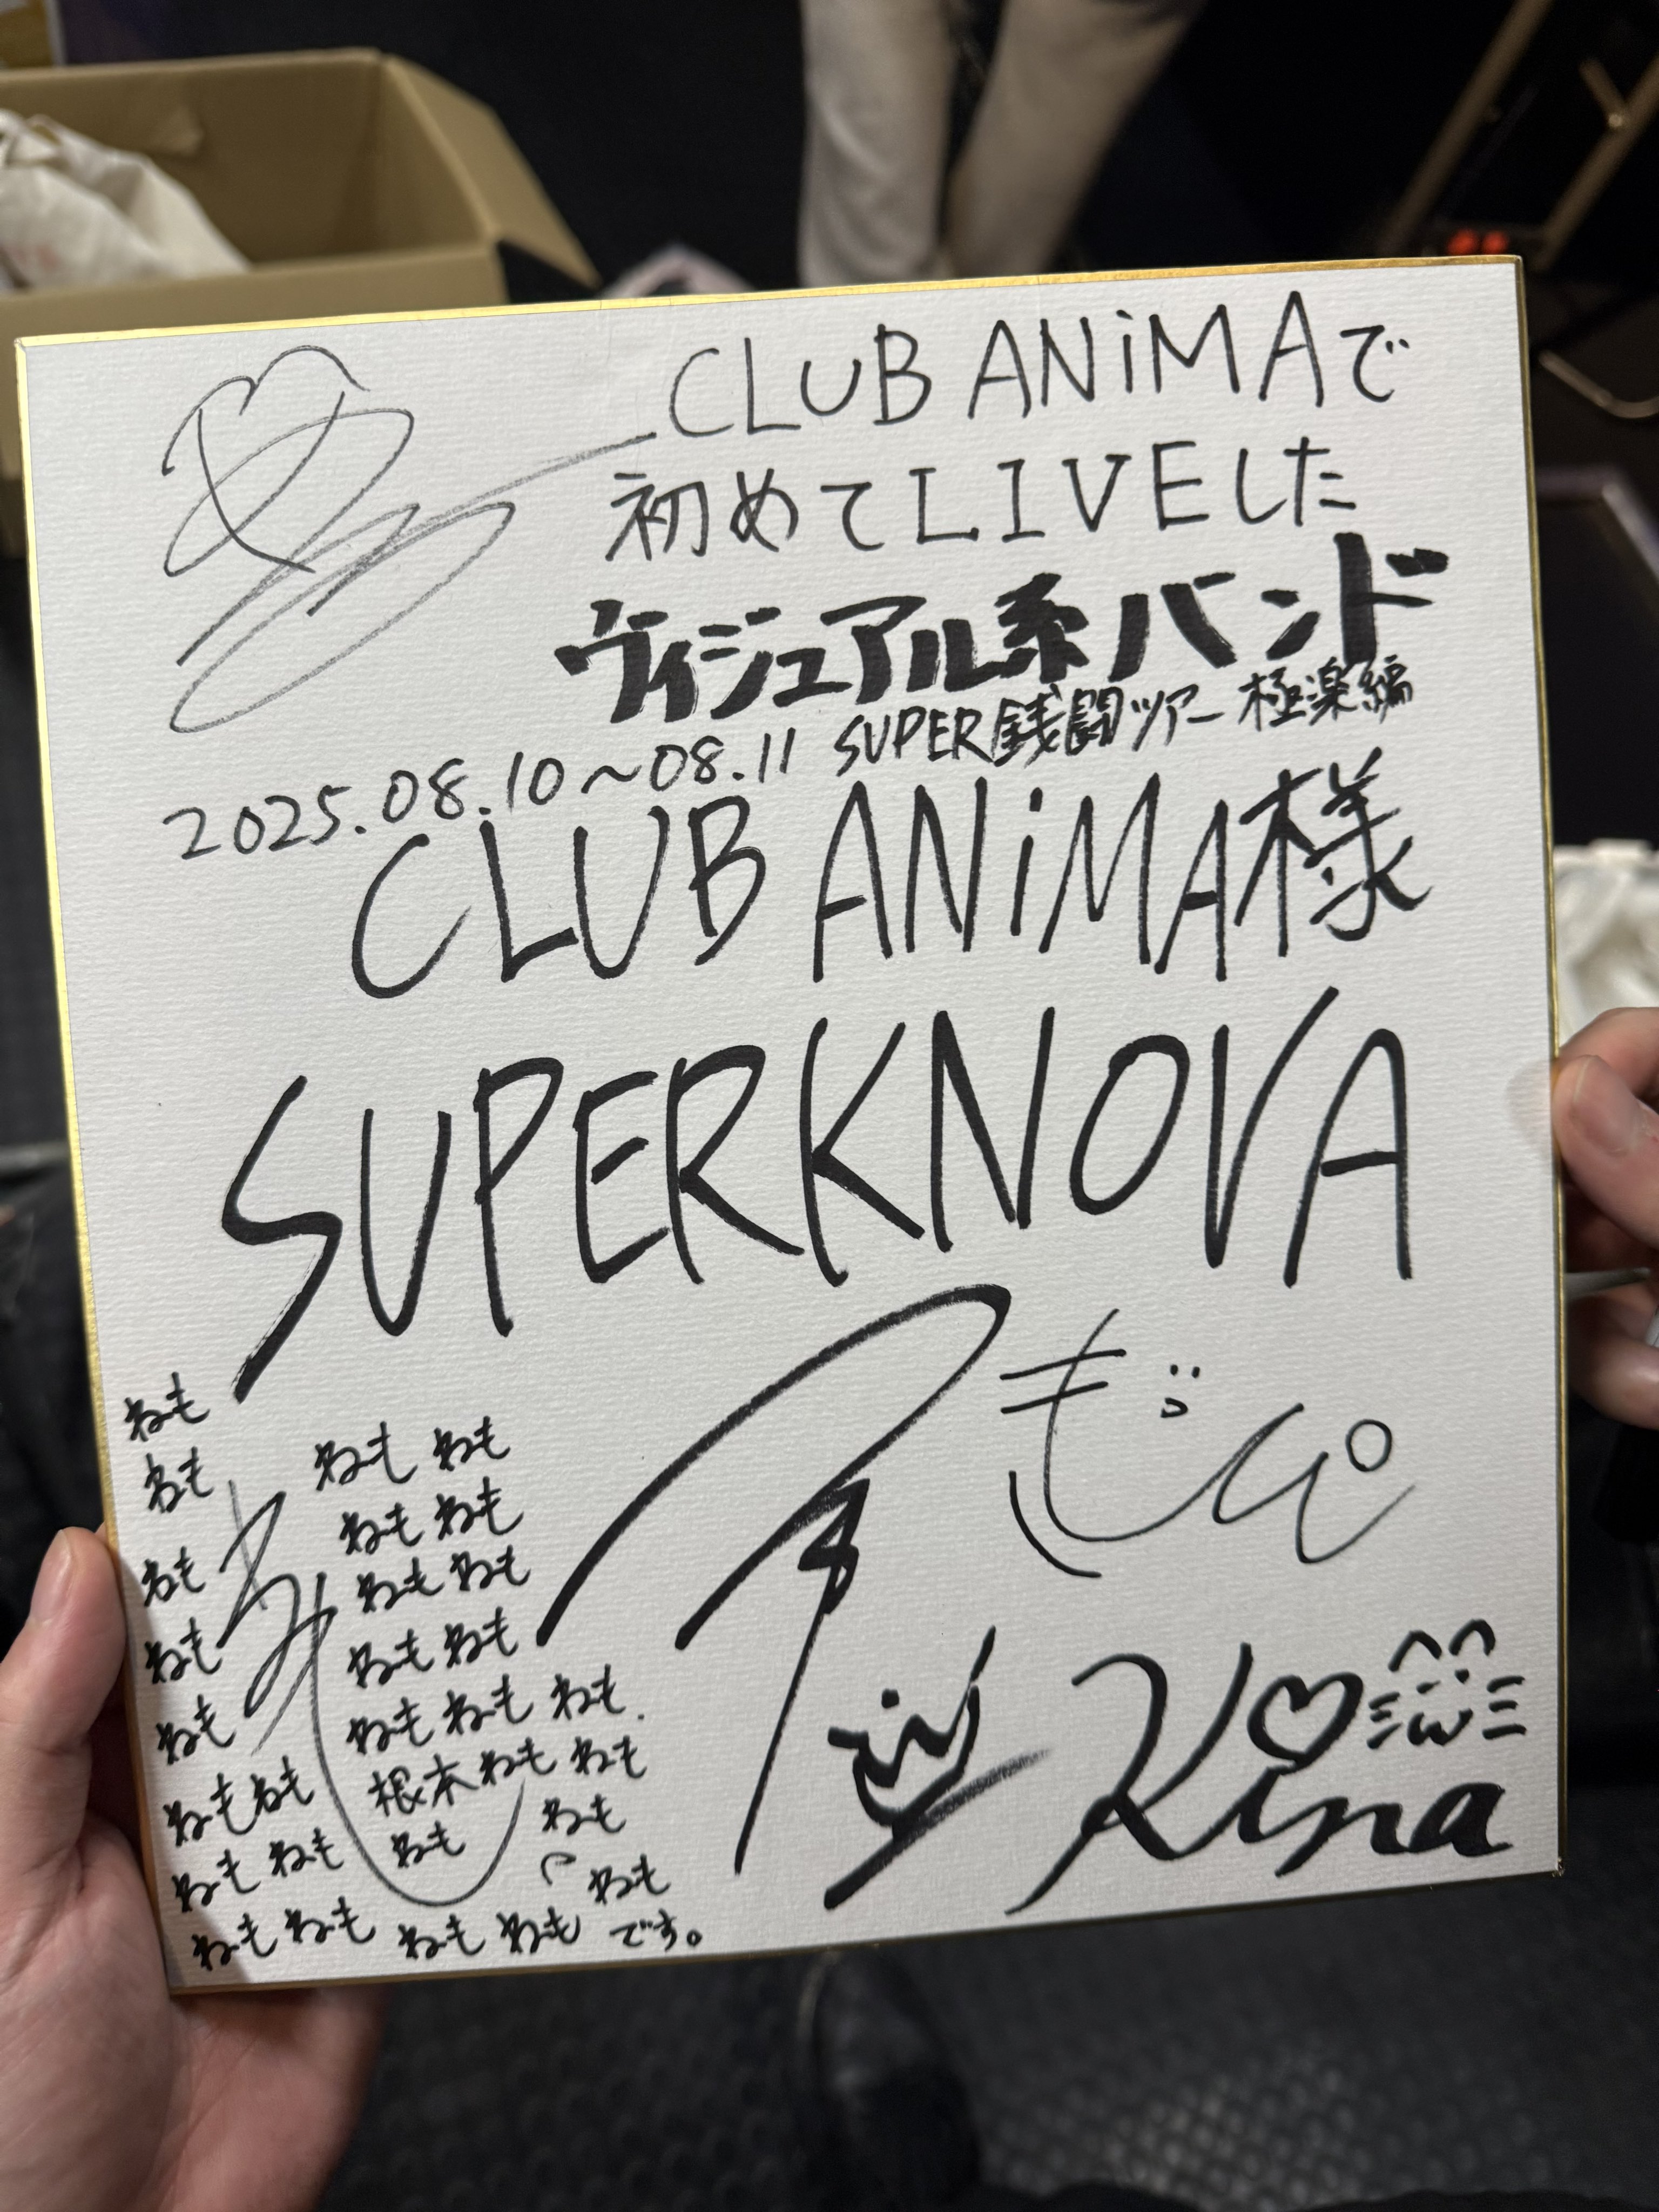 CLUB ANiMAで
初めてLIVEした
ヴィジュアル系バンド
2025.08.10～08.11 SUPER銭闘ツアー極楽編
CLUB ANiMA様
SUPERKNOVA
ねも
ねも ねも ねも
ねも ねも
ねも ねも ねも
ねも ねも ねも
ねも ねも ねも ねも
ねも ねも 根本 ねも ねも
ねも ねも ねも ねも
ねも
ねも ねも ねも ねも です。
ぎぶぴ
Kina